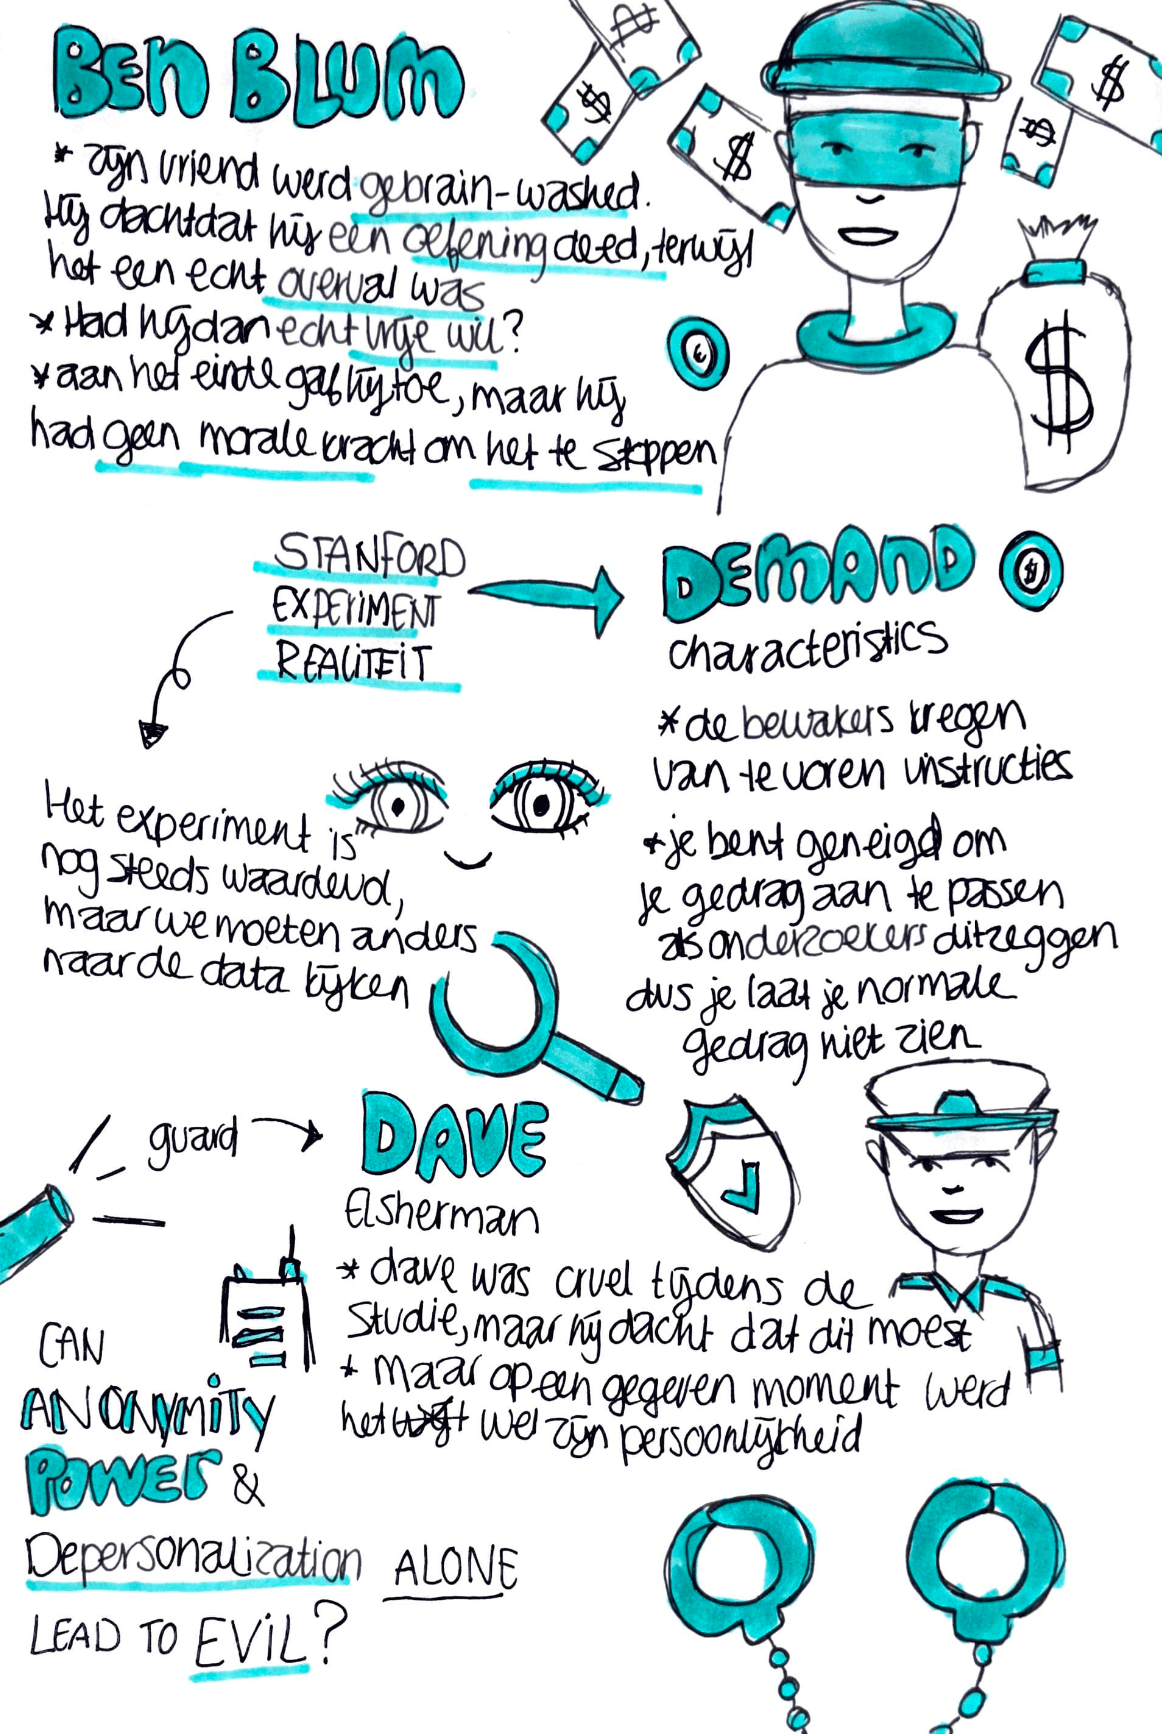 BEN BLUM
* zijn vriend werd gebrain-washed.
Hij dacht dat hij een oefening deed, terwijl
het een echt overval was
* Had hij dan echt vrije wil?
* aan het einde gaf hij toe, maar hij
had geen morale kracht om het te stoppen
STANFORD
EXPERIMENT
REALITEIT
DEMAND
characteristics
* de bewakers kregen
van te voren instructies
* je bent geneigd om
je gedrag aan te passen
als onderzoekers dit zeggen
dus je laat je normale
gedrag niet zien
Het experiment is
nog steeds waardevol,
maar we moeten anders
naar de data kijken
guard
DAVE
Elsherman
* dave was cruel tijdens de
studie, maar hij dacht dat dit moest
* maar op een gegeven moment werd
het wel zijn persoonlijkheid
CAN
ANONYMITY
POWER &
Depersonalization ALONE
LEAD TO EVIL?
$
$
$
$
$
€
$